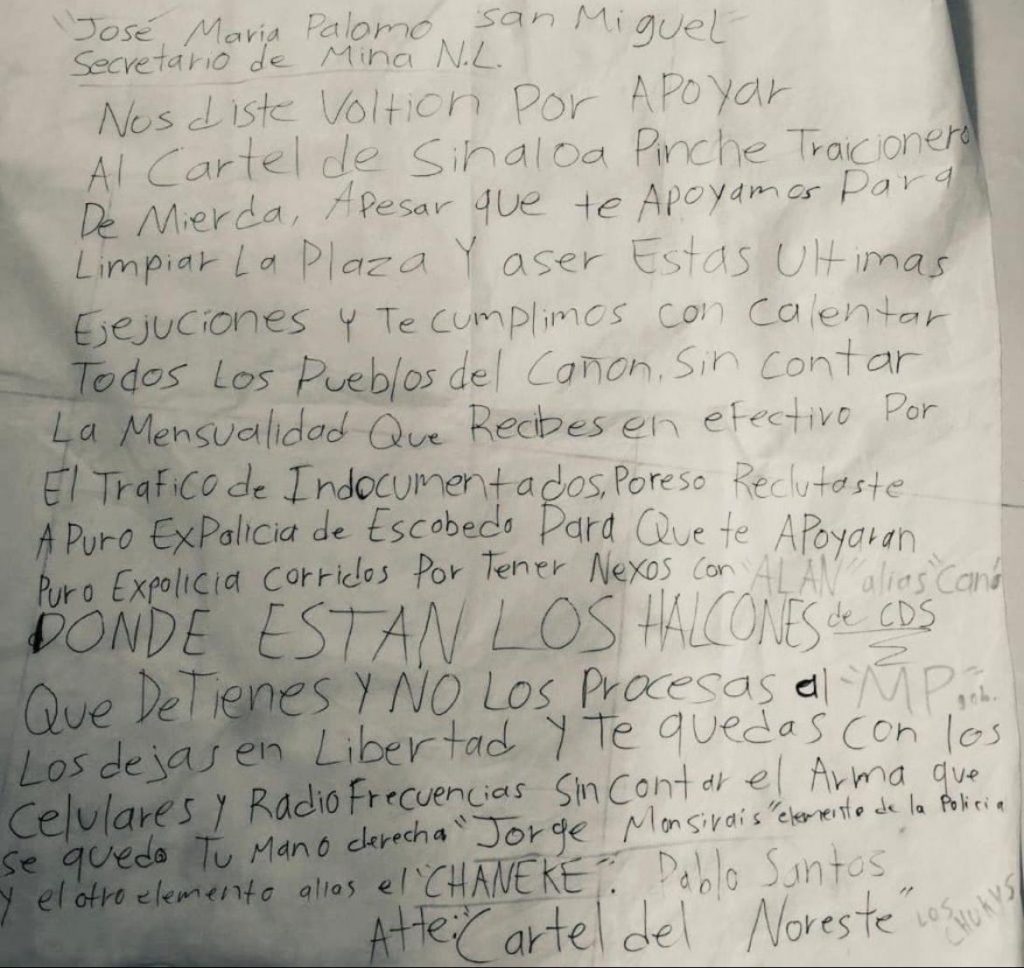 "José Maria Palomo San Miguel"
Secretario de Mina N.L.
Nos diste Voltion Por APoyar
Al Cartel de Sinaloa Pinche Traicionero
De Mierda, Apesar que te Apoyamos Para
Limpiar La Plaza Y aser Estas Ultimas
Ejejuciones y Te cumplimos con Calentar
Todos Los Pueblos del Cañon, Sin contar
La Mensualidad Que Recibes en efectivo Por
El Trafico de Indocumentados, Poreso Reclutaste
A Puro ExPolicia de Escobedo Para Que te APoyaran
Puro Expolicia Corridos Por Tener Nexos con "ALAN" alias "Cano
DONDE ESTAN LOS HALCONES de CDS
Que DeTienes Y NO Los Procesas al "MP"
Los dejas en Libertad y Te quedas con los
Celulares y RadioFrecuencias Sin Contar el Arma que
se quedo Tu Mano derecha "Jorge Monsivais" elemento de la Policia
y el otro elemento alias el "CHANEKE". Pablo Santos
Atte: "Cartel del Noreste"
LOS CHUKYS